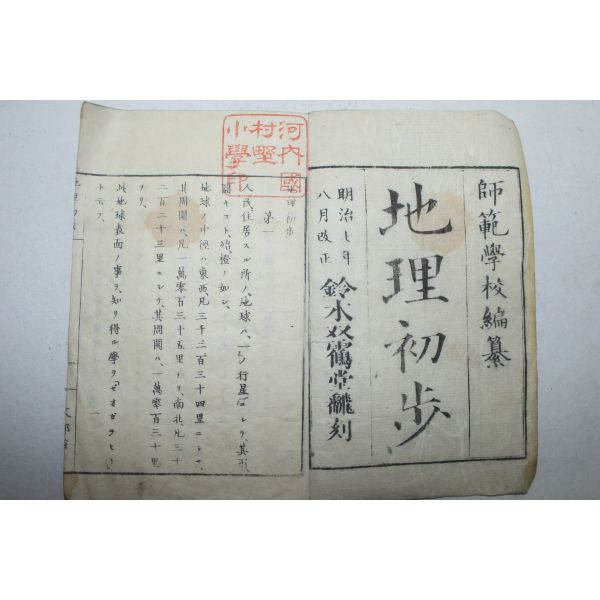 師範學校編纂
地理初步
明治七年
八月改正
鈴木双鶴堂飜刻
河内國
村野
小學印
地理初步
第一
人民住居スル所ノ地球ハ、一ノ行星ニシテ其形、
圓キコト、殆橙ノ如シ、
地球ノ中徑ハ東西凡三千二百三十四里ニシテ、
其周圍ハ、凡一萬零百三十五里ナリ、南北凡三千
二百二十三里ニシテ、其周圍ハ、一萬零百三十里
ナリ、
此地球表面ノ事ヲ、知リ得ル學ヲゼオガラヒー
ト云フ、
一